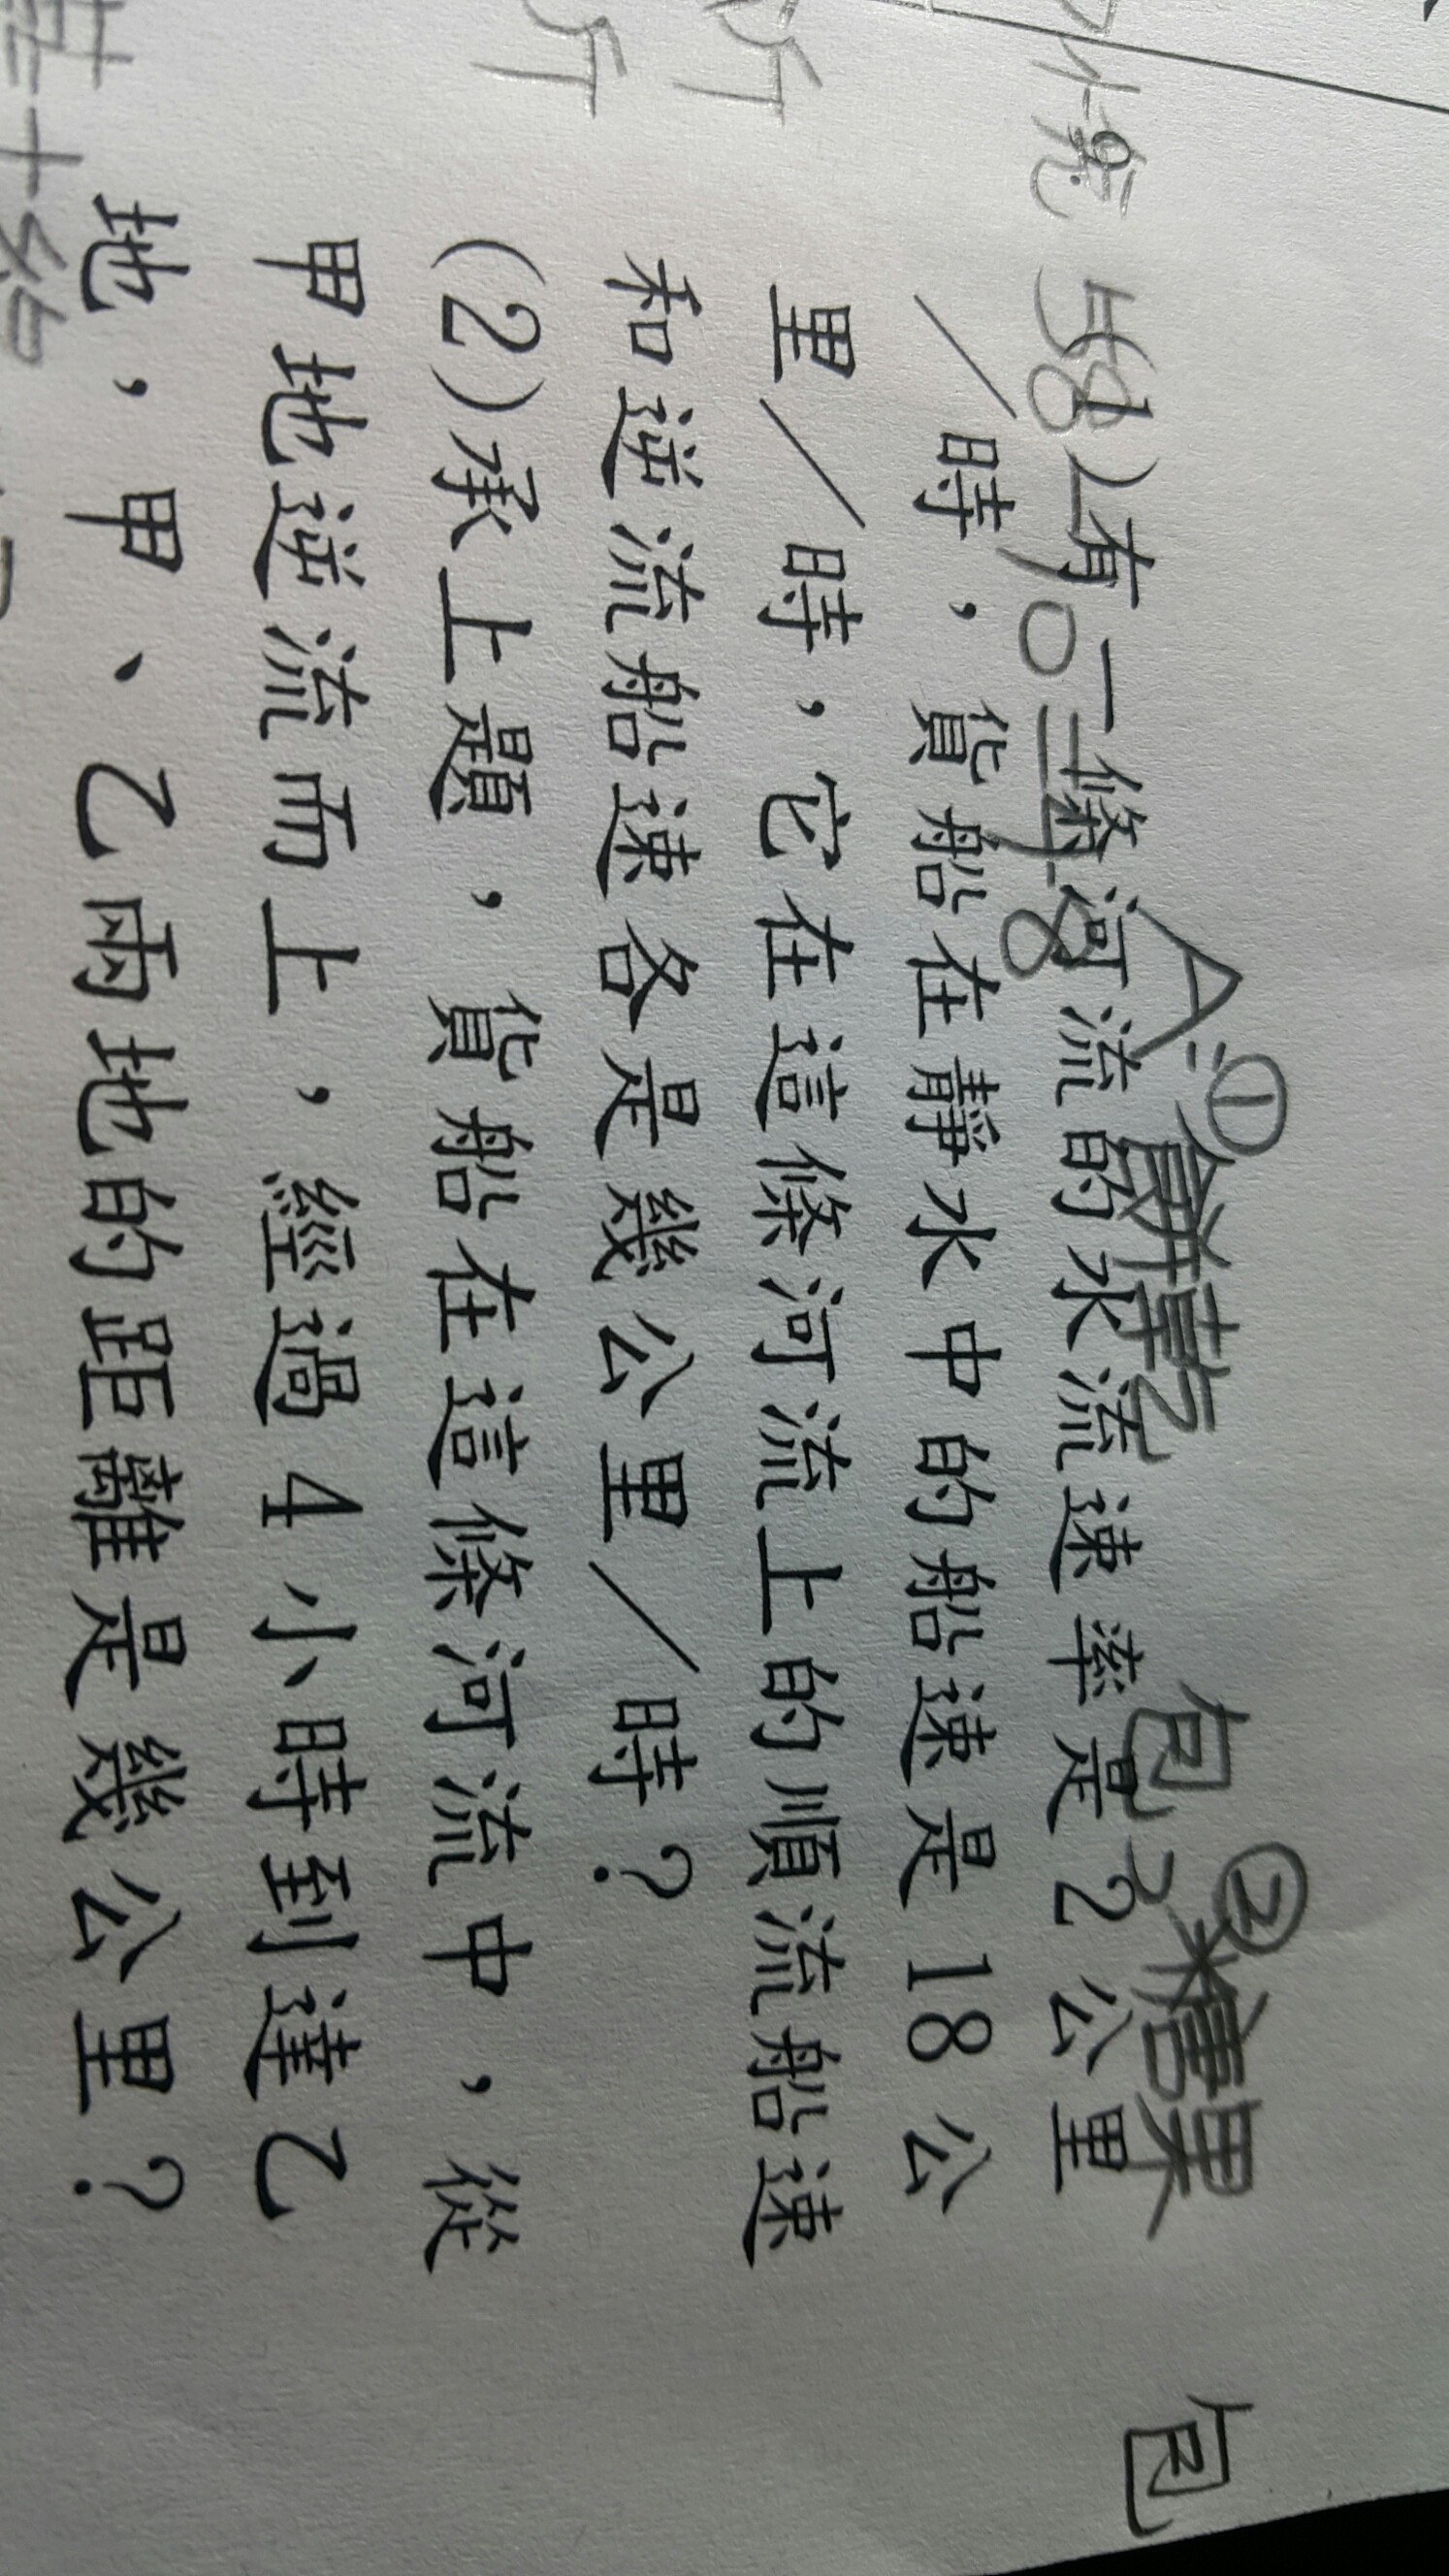 A:① 餅乾 包 ② 糖果 包
(1)有一條河流的水流速率是2公里
／時，貨船在靜水中的船速是18公
里／時，它在這條河流上的順流船速
和逆流船速各是幾公里／時？
(2)承上題，貨船在這條河流中，從
甲地逆流而上，經過4小時到達乙
地，甲、乙兩地的距離是幾公里？